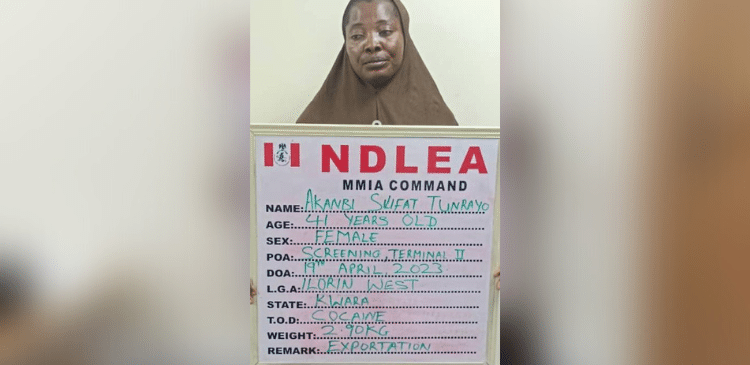 NDLEA
MMIA COMMAND
NAME: AKANBI SKIFAT TUNRAYO
AGE: 41 YEARS OLD
SEX: FEMALE
POA: SCREENING, TERMINAL II
DOA: 19TH APRIL, 2023
L.G.A: ILORIN WEST
STATE: KWARA
T.O.D: COCAINE
WEIGHT: 2.90KG
REMARK: EXPORTATION